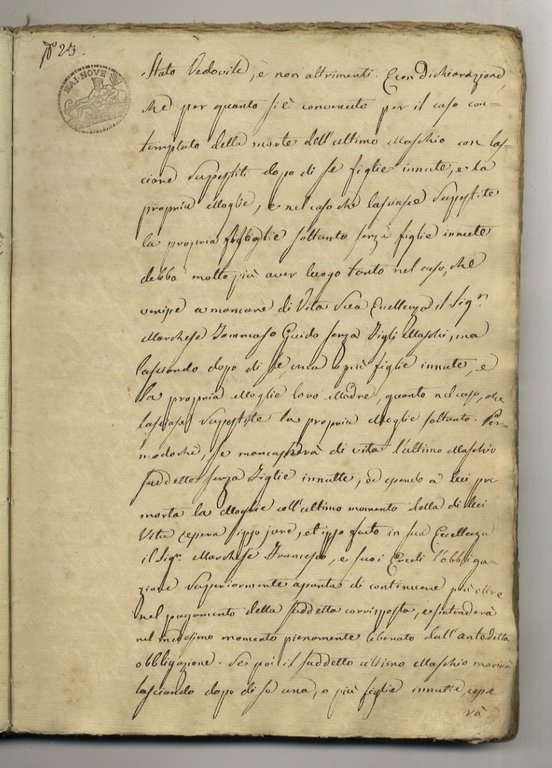 N° 23
BAI·NOVE
Stato Vedovile, e non altrimenti. E con dichiarazione,
che per quanto si è convenuto per il caso con-
templato della morte dell'ultimo Maschio con las-
ciare Superstiti dopo di se figlie innute, e la
propria Moglie, e nel caso che lasciasse Superstite
la propria Moglie soltanto senza figlie innute
debba molto più aver luogo tanto nel caso, che
venisse a mancare di Vita Sua Eccellenza il Sigr.
Marchese Tommaso Guido senza Figli Maschi, ma
lasciando dopo di se una o più figlie innute, e
la propria Moglie loro Madre, quanto nel caso, che
lasciasse Superstite la propria Moglie soltanto. Per
modochè, se mancasse di vita l'ultimo Maschio
suddetto senza Figlie innutte, ed essendo a lui pre
morta la Moglie all'ultimo momento della di lui
Vita cesserà ipso jure, et ipso facto in sua Eccellenza
il Sigr. Marchese Francesco, e suoi Eredi l'obbliga-
zione Superiormente apunta di continuare più oltre
nel pagamento della suddetta corrisposta, e s'intenderà
nel medesimo momento pienamente liberato dall'antedetta
obbligazione. Se poi il suddetto ultimo Maschio morirà
lasciando dopo di se una, o più figlie innutte, cesse
rà